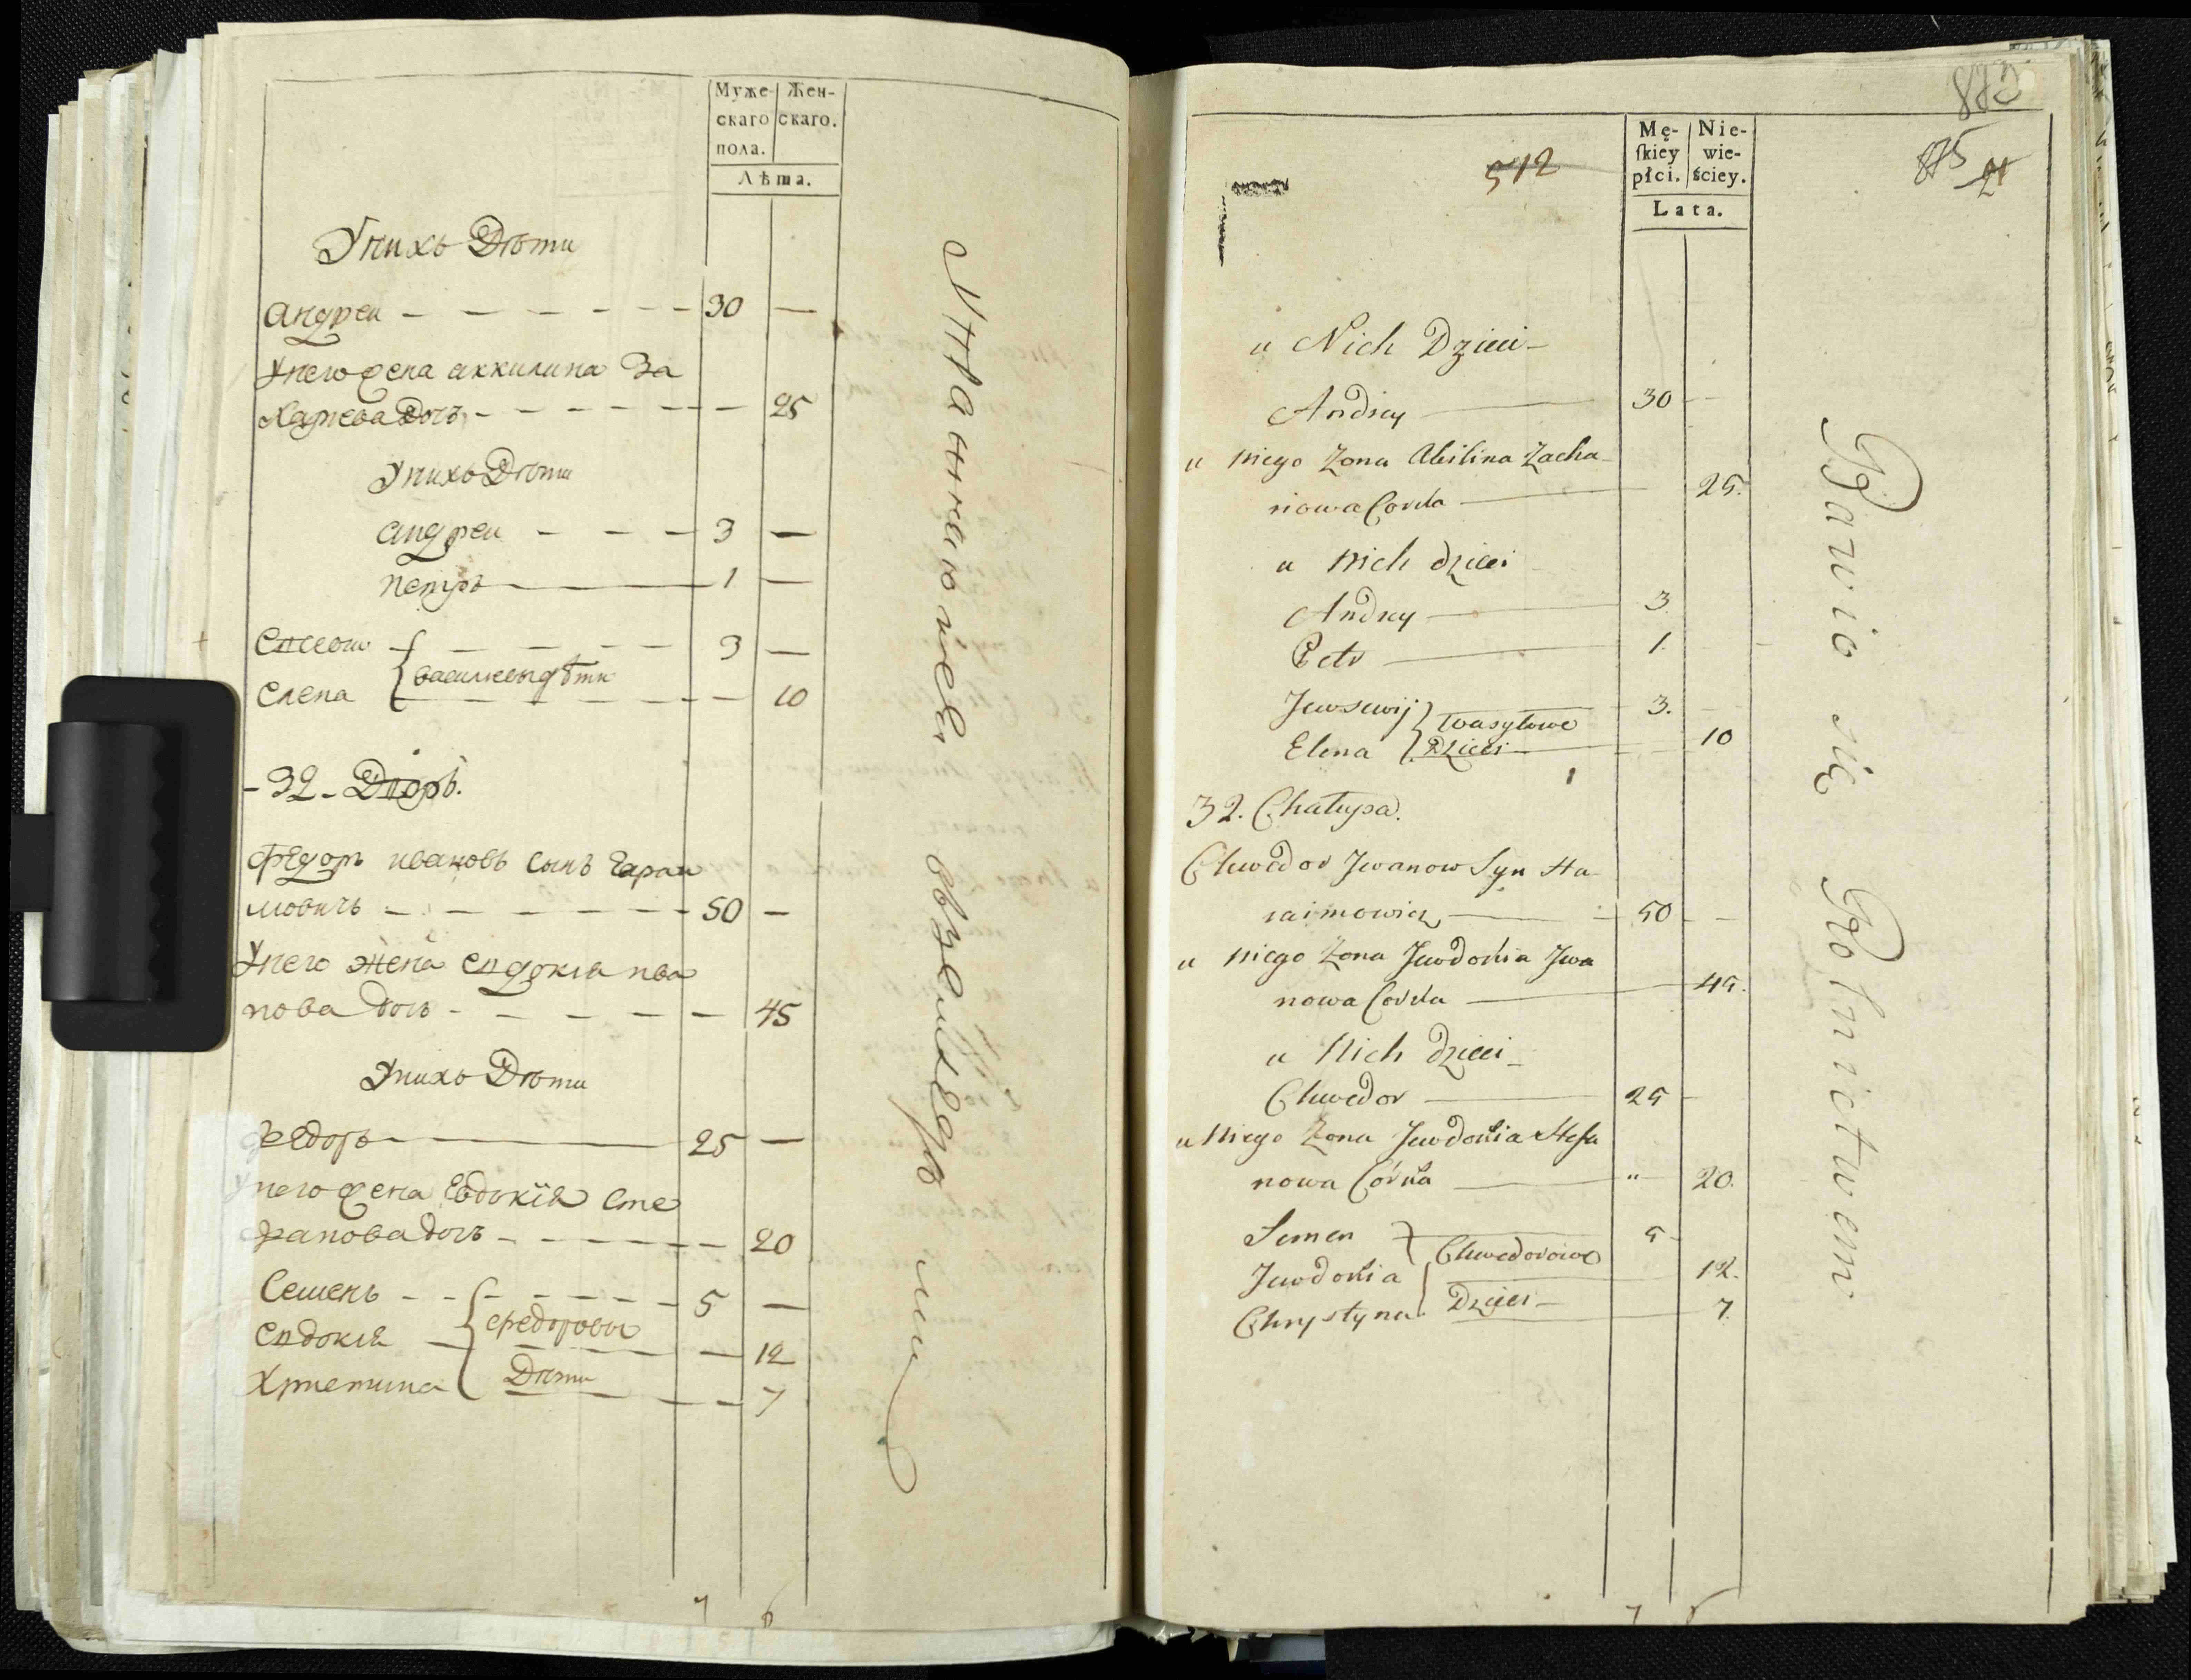 Муже-
скаго
пола.
Жен-
скаго.
Лѣта.
Унихъ Дѣти
андреи — 30 —
Унего жена аккилина За
харьева дочъ — 25
Унихъ Дѣти
андреи — 3 —
петръ — 1 —
— 3 —
василиевы дѣти
елена — 10
- 32 - Дворъ.
Федоръ ивановъ сынъ гараи
мовичь — 50 —
Унего жена евдокия ива
нова дочъ — 45
Унихъ Дѣти
федоръ — 25 —
Унего жена Евдокіѣ Сте
фанова дочъ — 20
Семенъ — 5 —
федоровы
евдокиѣ — 12
Дѣти
Христина — 7
7 6
873
875
21
512
Mę-
ſkiey
płci.
Nie-
wie-
ściey.
Lata.
u Nich Dzieci -
Andrey — 30 —
u niego Żona Akilina Zacha-
rowa Corka — 25.
u nich dzieci
Andrey — 3.
Petr — 1.
Jewsewij — 3.
Wasylowe
Elena Dzieci — 10
32. Chałupa.
Chwedor Jwanow Syn Ha-
raimowicz — 50 —
u niego Żona Jewdokia Jwa
nowa Corka — 45.
u Nich dzieci -
Chwedor — 25 —
u Niego Żona Jewdokia Stefa
nowa Córka — " 20.
Semen — 5 -
Chwedorowe
Jewdokia — 12.
Chrystyna Dzieci — 7.
7 6
Bawio się Rolnictwem